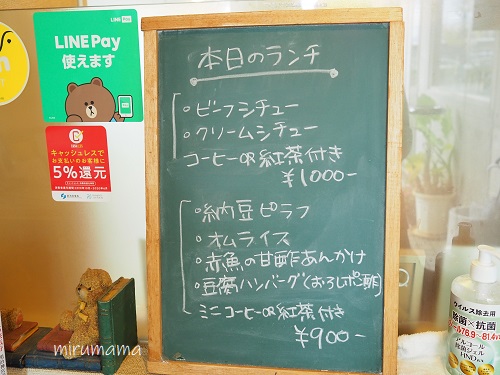 LINE Pay
LINE Pay
使えます
キャッシュレスで
お支払いのお客様に
5%還元
本日のランチ
・ビーフシチュー
・クリームシチュー
コーヒーOR紅茶付き
¥1000-
・納豆ピラフ
・オムライス
・赤魚の甘酢あんかけ
・豆腐ハンバーグ(おろしポン酢)
ミニコーヒーOR紅茶付き
¥900-
ウイルス除去用
除菌×抗菌
アルコール
除菌ジェル
HND
mirumama